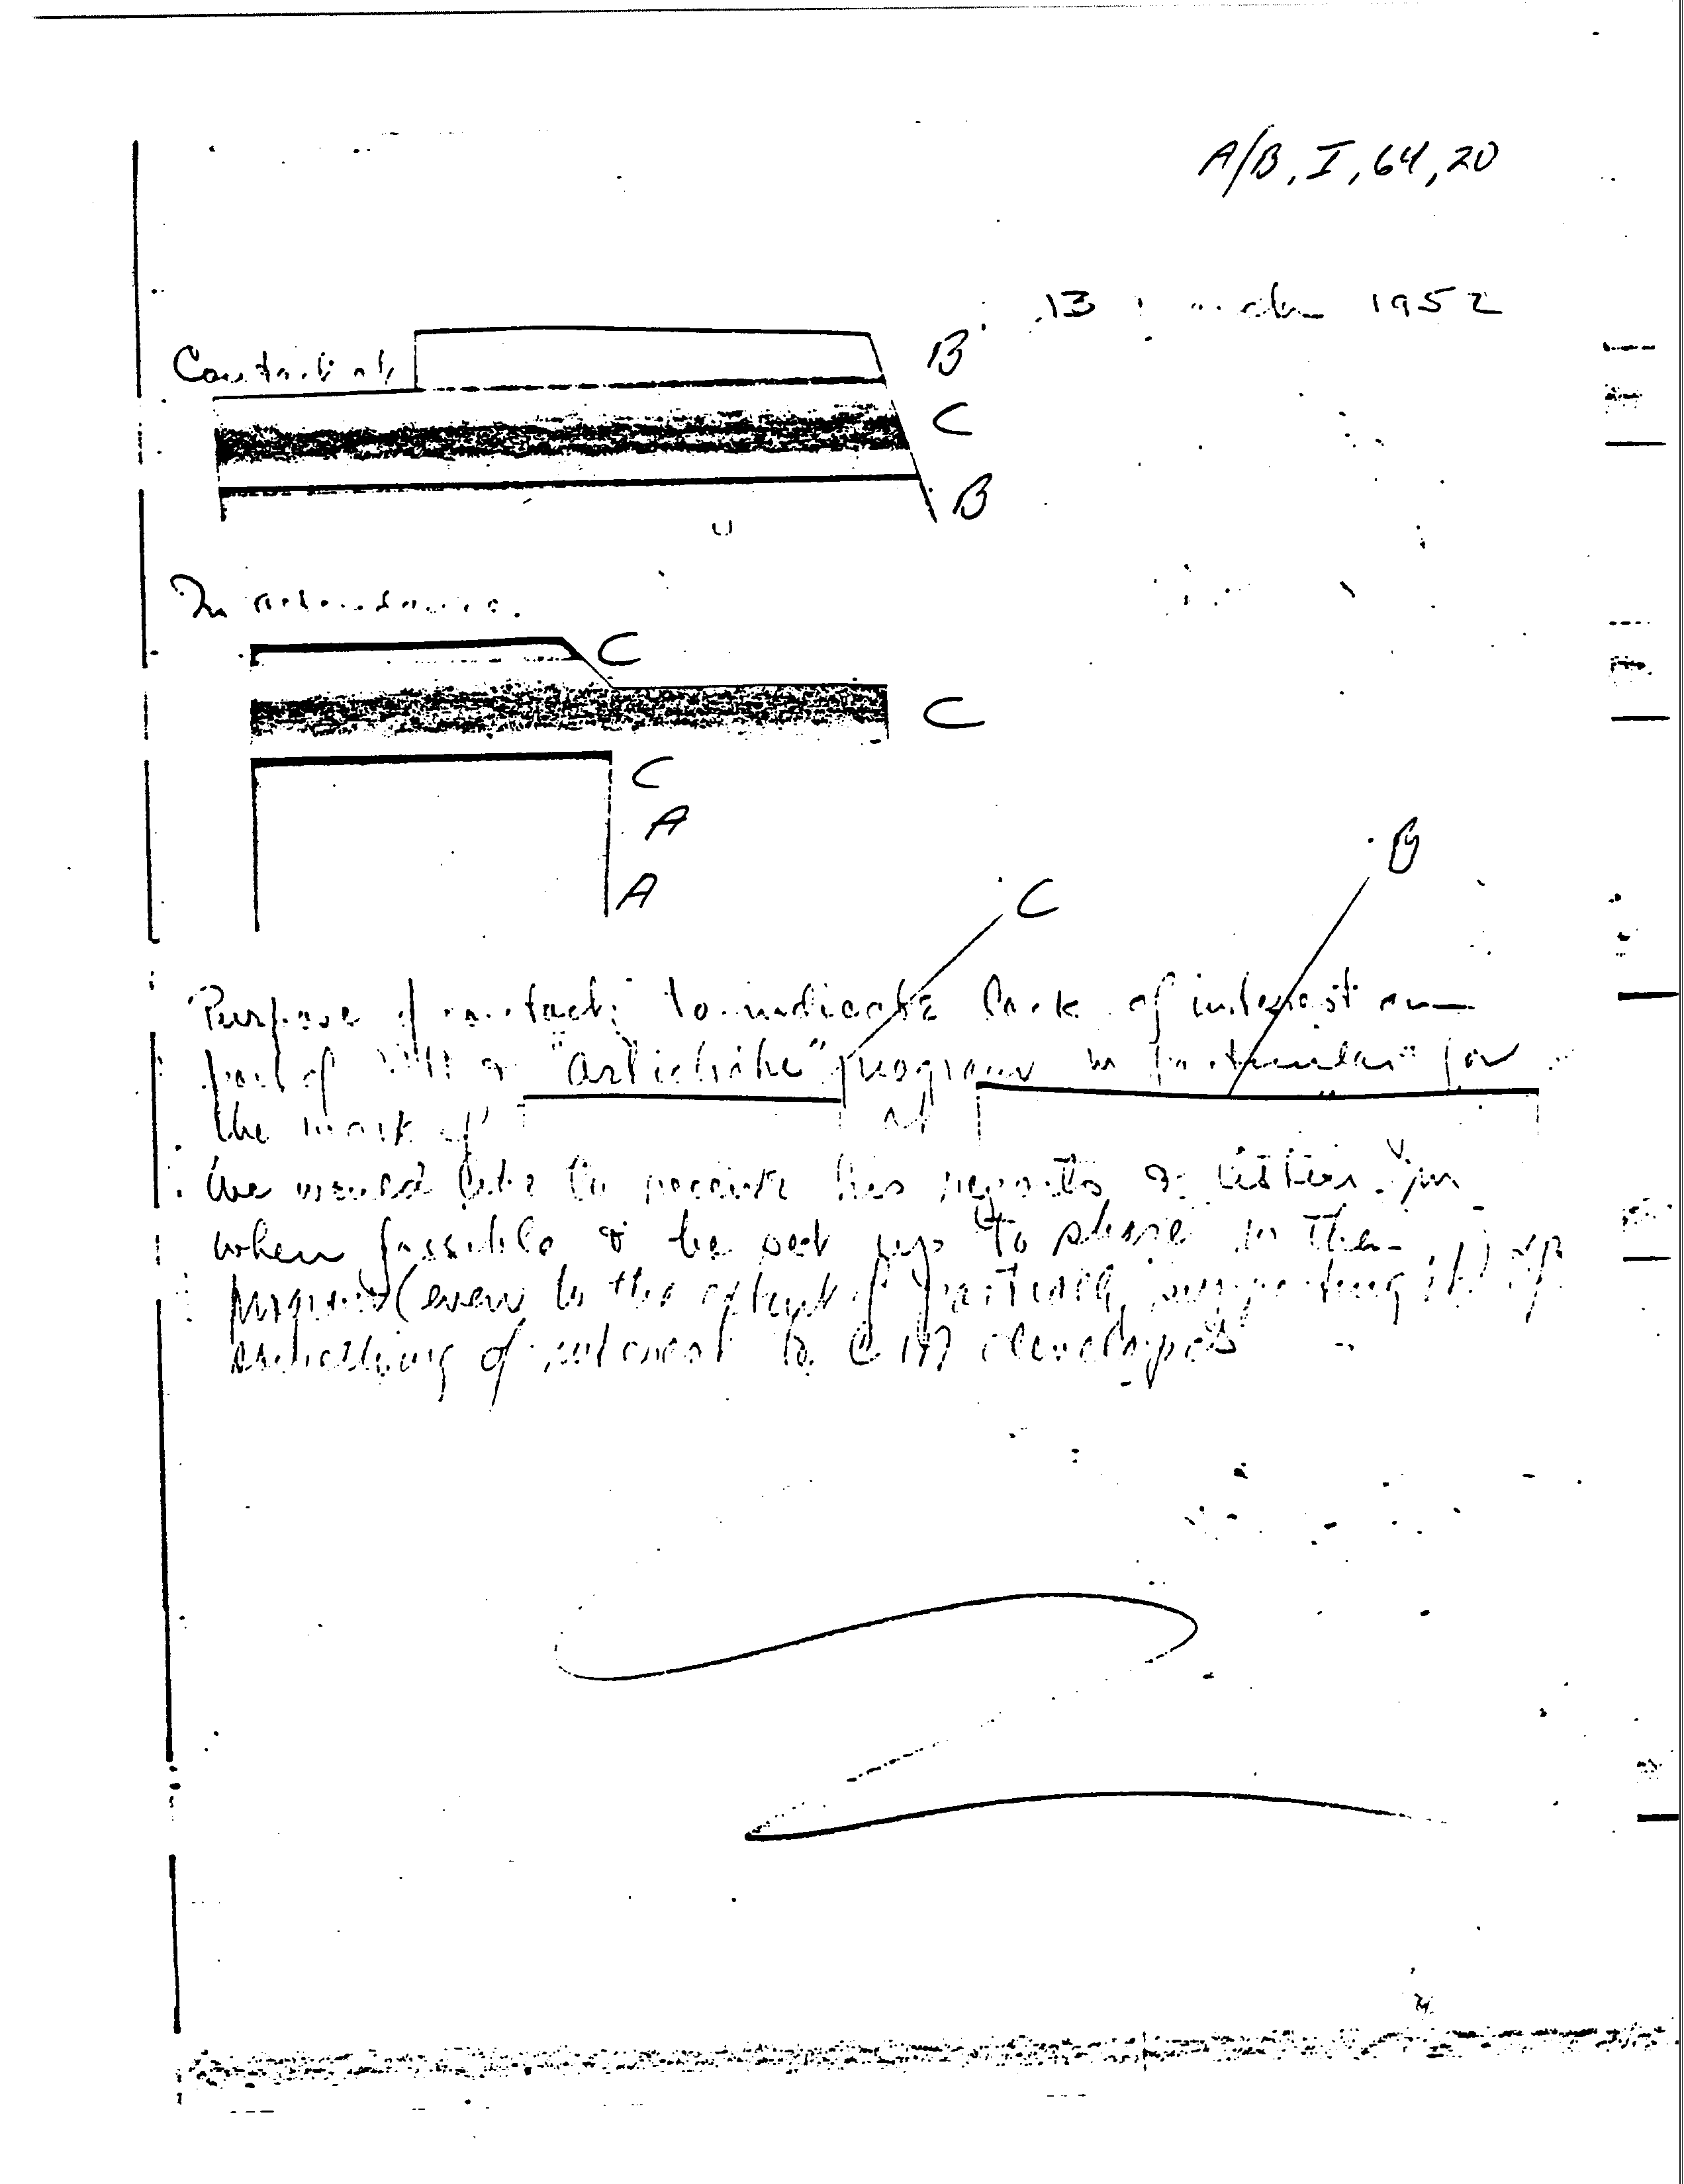 A/B, I, 64, 20
13 1952
Contact at B
C
B
In attendance
C
C
C
A
A
C B
Purpose of contact: to indicate lack of interest on
part of "Artichoke" program in particular for
the work of at
We would like to receive his reports &
when possible & be set up to share in the
program (even to the extent of partially supporting it) if
something of interest to develops